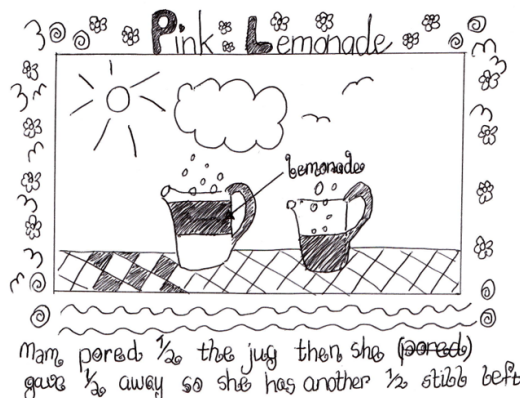 Pink Lemonade
lemonade
Mam pored 1/2 the jug then she (pored)
gave 1/2 away so she has another 1/2 still left